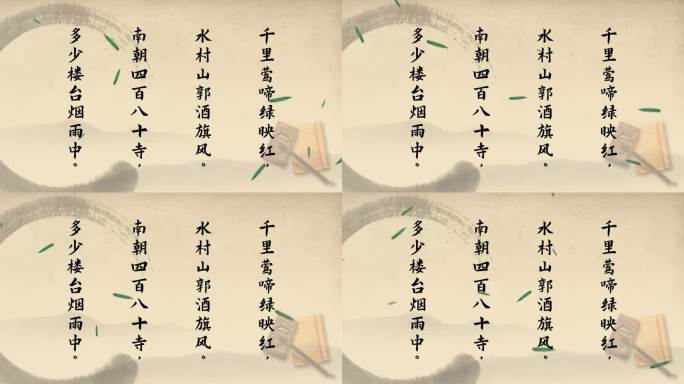 千里莺啼绿映红，
水村山郭酒旗风。
南朝四百八十寺，
多少楼台烟雨中。
千里莺啼绿映红，
水村山郭酒旗风。
南朝四百八十寺，
多少楼台烟雨中。
千里莺啼绿映红，
水村山郭酒旗风。
南朝四百八十寺，
多少楼台烟雨中。
千里莺啼绿映红，
水村山郭酒旗风。
南朝四百八十寺，
多少楼台烟雨中。